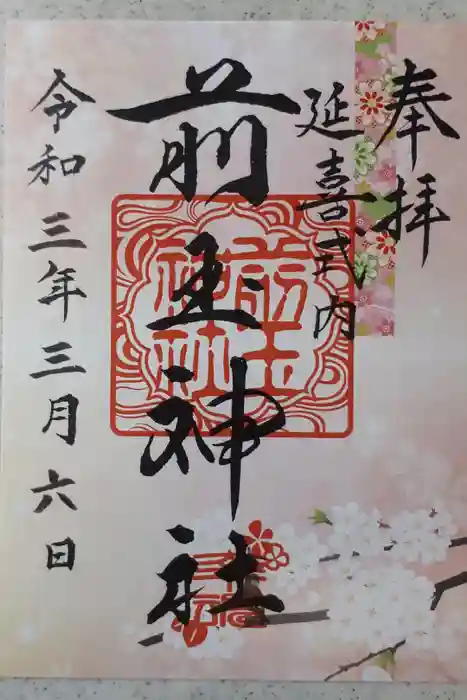 奉拝
延喜式内
前玉神社
前玉神社
令和三年三月六日